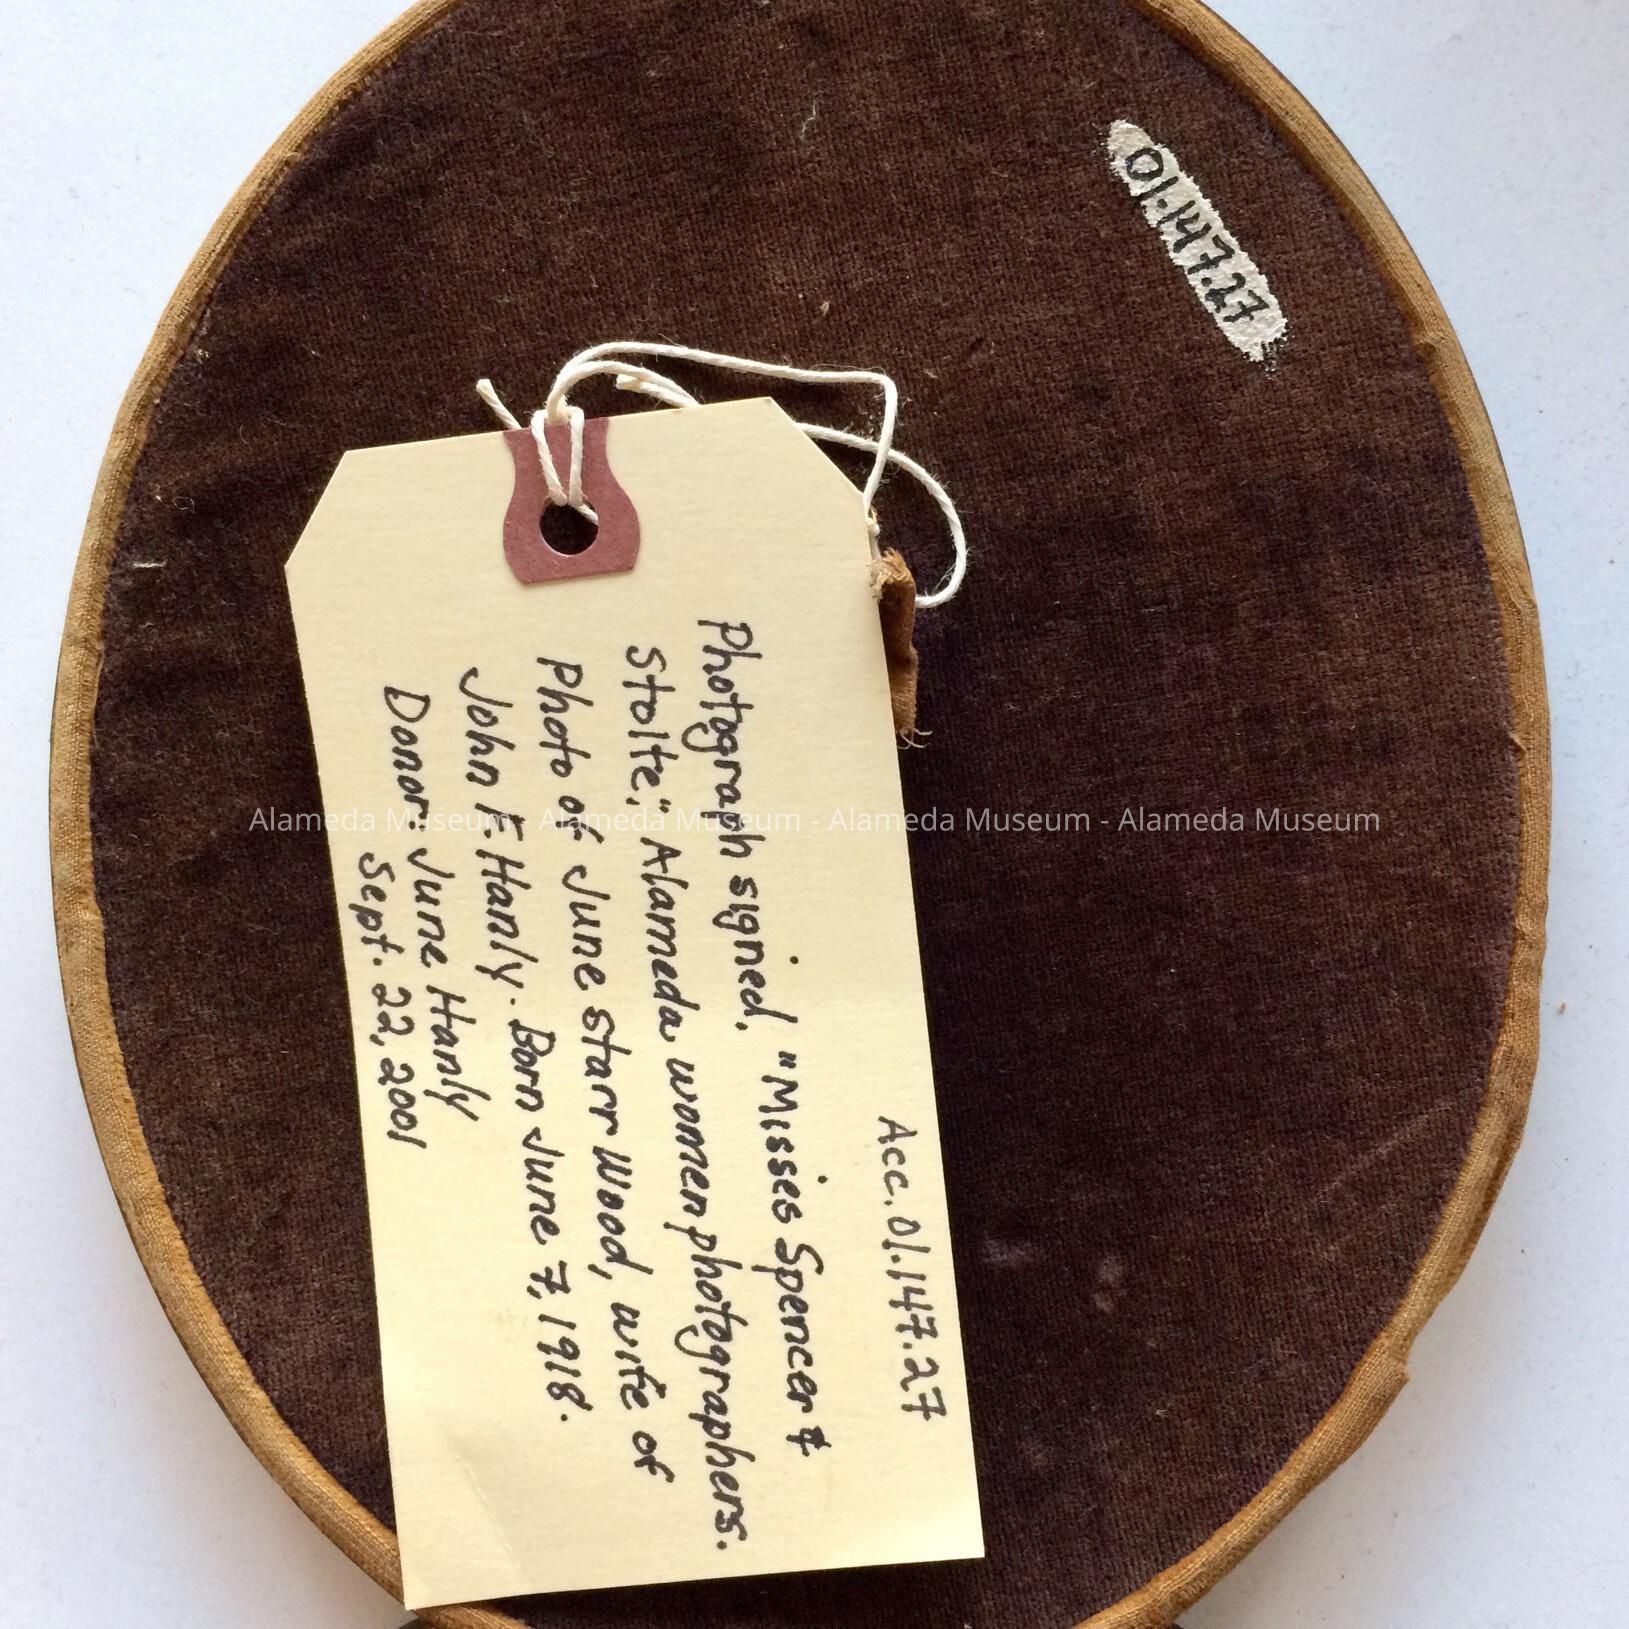 01.147.27
Acc. 01.147.27
Photograph signed, "Misses Spencer &
Stolte," Alameda, women photographers.
Photo of June Starr Wood, wife of
John E. Hanly. Born June 7, 1918.
Donor: June Hanly
Sept. 22, 2001
Alameda Museum - Alameda Museum - Alameda Museum - Alameda Museum